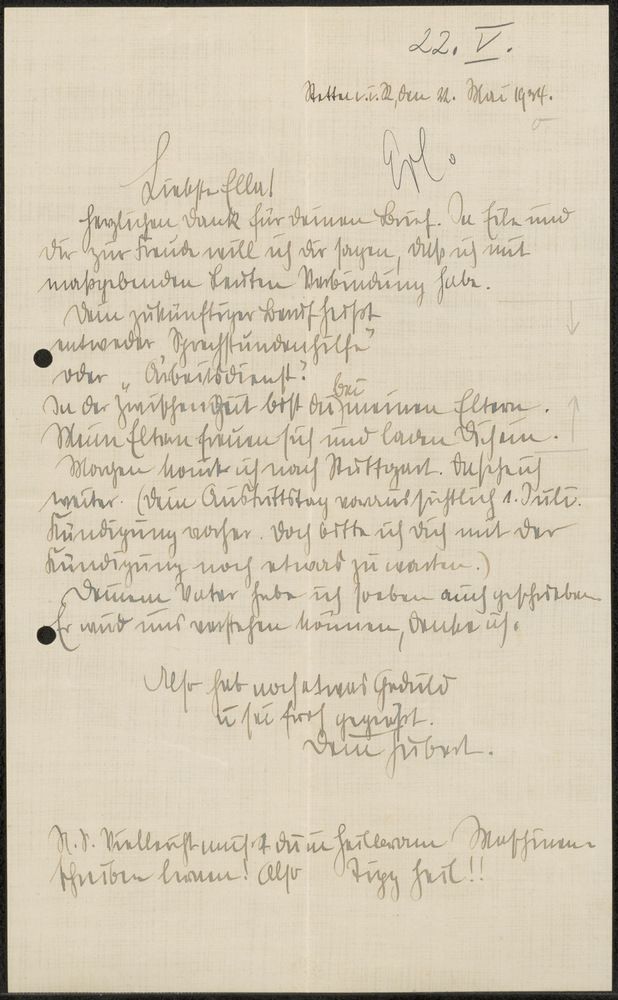 22. V.
Stetten i. R., den 22. Mai 1934.
Liebste Ella!
herzlichen Dank für deinen Brief. In Eile und
dir zur Freude will ich dir sagen, daß ich mit
maßgebenden Leuten Verbindung habe.
Dein zukünftiger Beruf heißt
entweder „Sprechstundenhilfe"
oder „Arbeitsdienst".
In der Zwischenzeit bist du bei meinen Eltern.
Meine Eltern freuen sich und laden Dich ein.
Morgen komme ich nach Stuttgart. Da sehe ich
weiter. (Dein Austrittstag voraussichtlich 1. Juli.
Kündigung vorher. Doch bitte ich dich mit der
Kündigung noch etwas zu warten.)
Deinem Vater habe ich soeben auch geschrieben
Er wird uns verstehen können, denke ich.
Also hab noch etwas Geduld
u sei froh gegrüßt.
Dein Hubert.
N.S. Vielleicht mußt du in Heilbronn Maschinen-
schreiben lernen! Also Tipp Heil!!